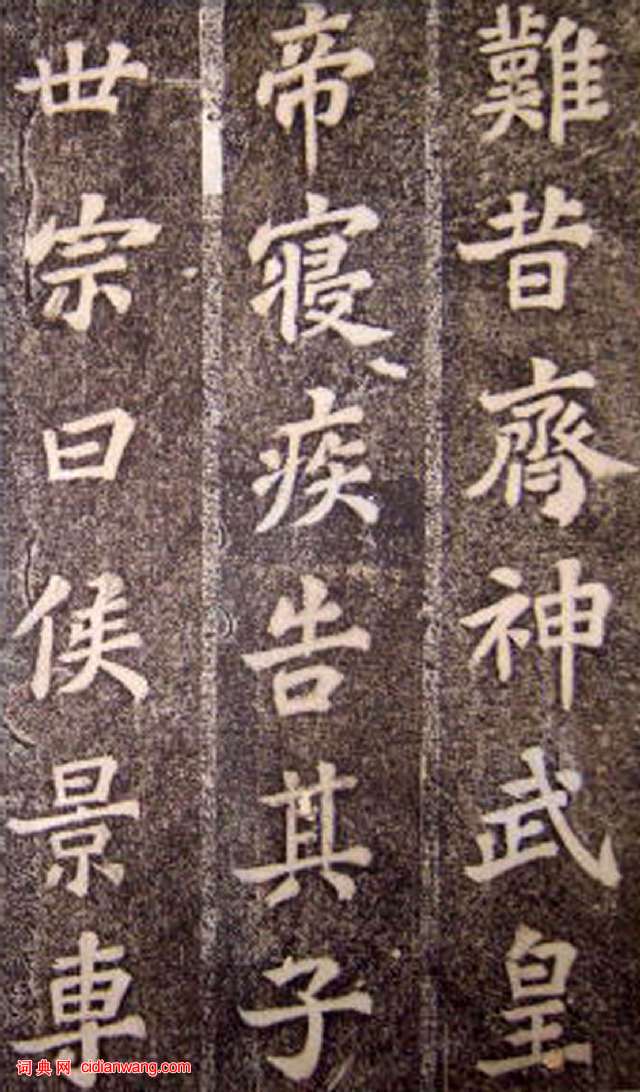 難昔齊神武皇
帝寑疾告其子
世宗曰侯景車
词典网 cidianwang.com